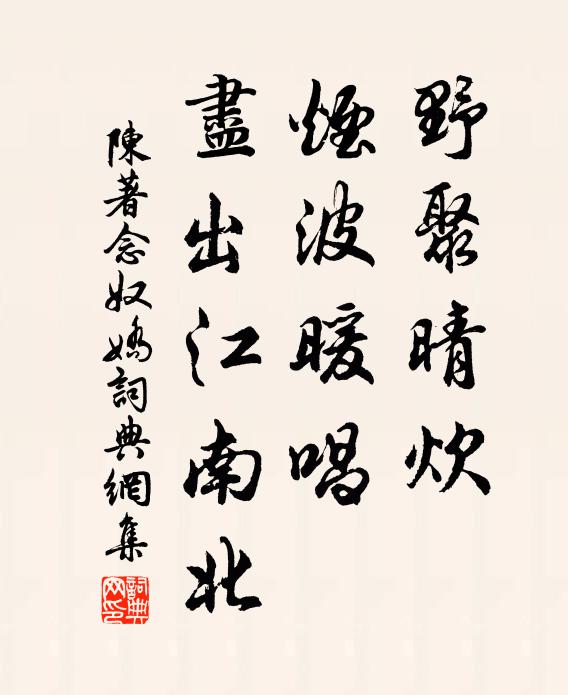 野聚晴炊
煙波暖唱
盡出江南北
陳著念奴嬌詞典網集
詞典網印